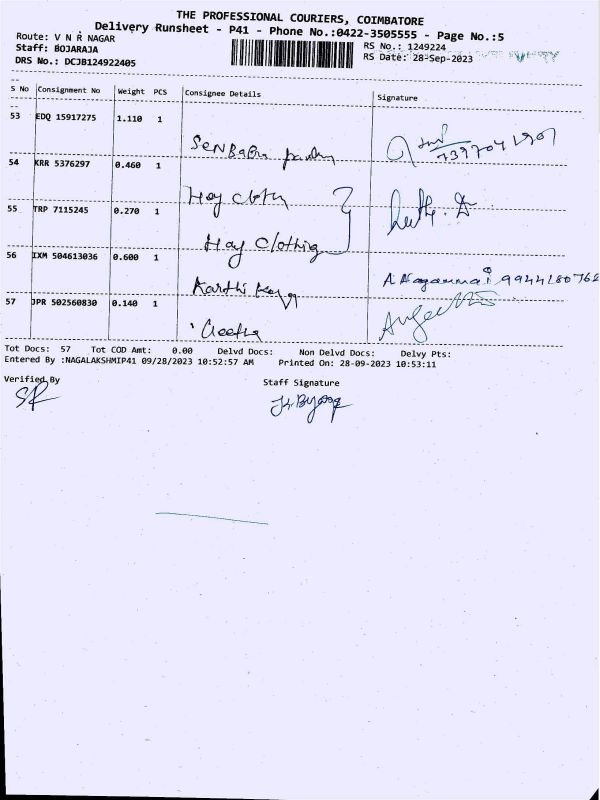 THE PROFESSIONAL COURIERS, COIMBATORE
Delivery Runsheet - P41 - Phone No.:0422-3505555 - Page No.:5
Route: V N R NAGAR
RS No.: 1249224
Staff: BOJARAJA
RS Date: 28-Sep-2023
DRS No.: DCJB124922405
S No Consignment No Weight PCS Consignee Details Signature
53 EDQ 15917275 1.110 1
54 KRR 5376297 0.460 1
55 TRP 7115245 0.270 1
Hay Clothing
56 IXM 504613036 0.600 1
Karthi
A Nagammai 9944180762
57 JPR 502560830 0.140 1
Geetha
Tot Docs: 57 Tot COD Amt: 0.00 Delvd Docs: Non Delvd Docs: Delvy Pts:
Entered By :NAGALAKSHMIP41 09/28/2023 10:52:57 AM Printed On: 28-09-2023 10:53:11
Verified By Staff Signature